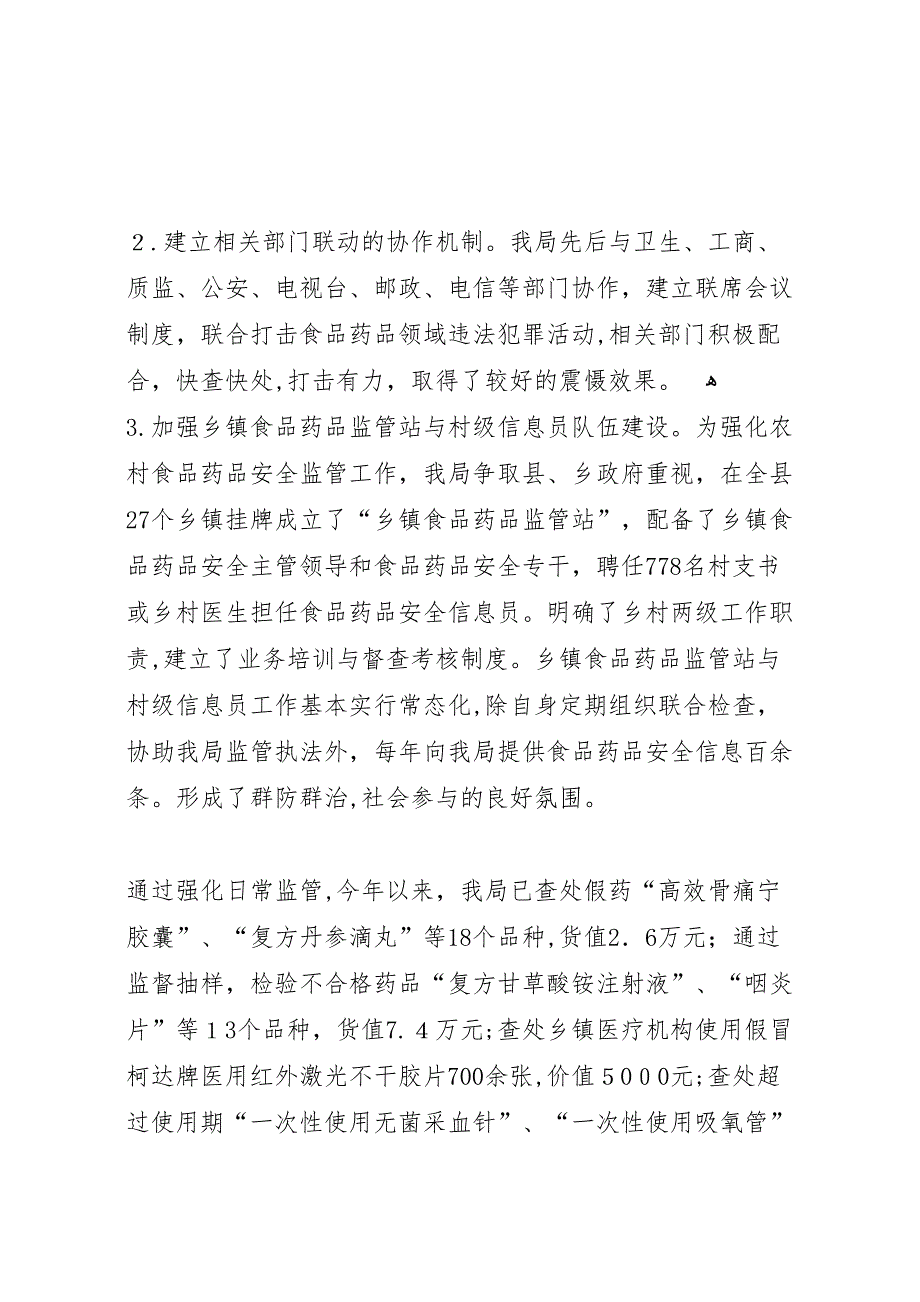 ２.建立相关部门联动的协作机制。我局先后与卫生、工商、
质监、公安、电视台、邮政、电信等部门协作，建立联席会议
制度，联合打击食品药品领域违法犯罪活动,相关部门积极配
合，快查快处,打击有力，取得了较好的震慑效果。 ﻫ
3.加强乡镇食品药品监管站与村级信息员队伍建设。为强化农
村食品药品安全监管工作，我局争取县、乡政府重视，在全县
27个乡镇挂牌成立了“乡镇食品药品监管站”，配备了乡镇食
品药品安全主管领导和食品药品安全专干，聘任778名村支书
或乡村医生担任食品药品安全信息员。明确了乡村两级工作职
责,建立了业务培训与督查考核制度。乡镇食品药品监管站与
村级信息员工作基本实行常态化,除自身定期组织联合检查，
协助我局监管执法外，每年向我局提供食品药品安全信息百余
条。形成了群防群治,社会参与的良好氛围。
通过强化日常监管,今年以来，我局已查处假药“高效骨痛宁
胶囊”、“复方丹参滴丸”等18个品种,货值2．6万元；通过
监督抽样，检验不合格药品“复方甘草酸铵注射液”、“咽炎
片”等１3个品种，货值7.４万元;查处乡镇医疗机构使用假冒
柯达牌医用红外激光不干胶片700余张,价值５０００元;查处超
过使用期“一次性使用无菌采血针”、“一次性使用吸氧管”